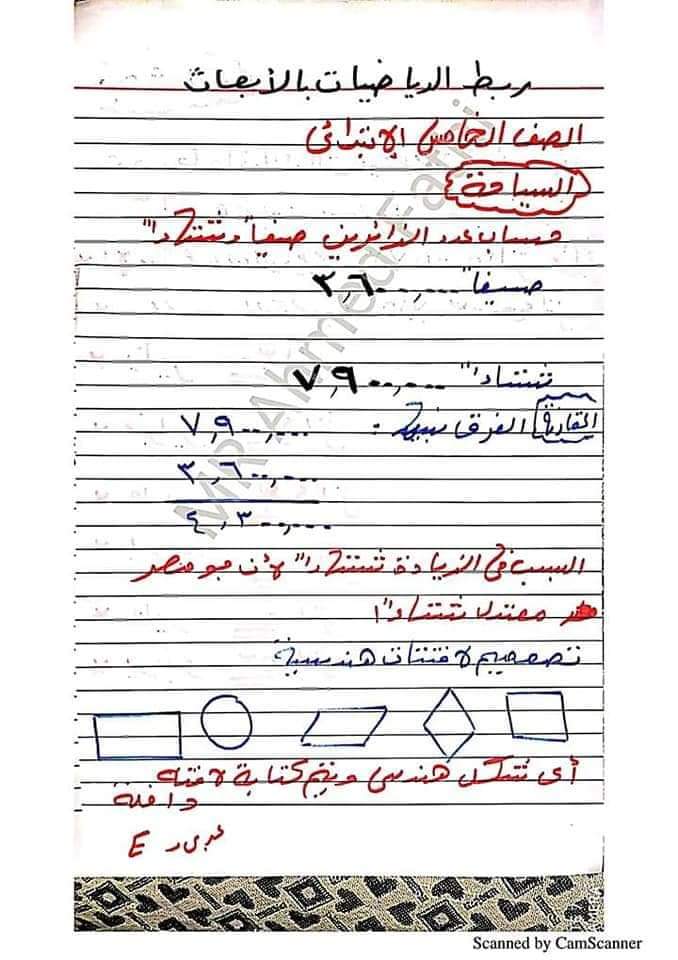 ربط الرياضيات بالأبحاث
الصف الخامس الابتدائى
السياحة
حساب عدد الزائرين صيفاً وشتاءاً
صيفاً ٣,٦٠٠,٠٠٠
شتاءاً ٧,٩٠٠,٠٠٠
المقارنة الفرق بينهم : ٧,٩٠٠,٠٠٠
٣,٦٠٠,٠٠٠
٤,٣٠٠,٠٠٠
السبب فى الزيادة شتاءاً لأن جو مصر
معتدل شتاءاً
تصميم لافتات هندسية
أى شكل هندسى ويتم كتابة لافته
دافئة
E
MR Ahmed Fathi
Scanned by CamScanner